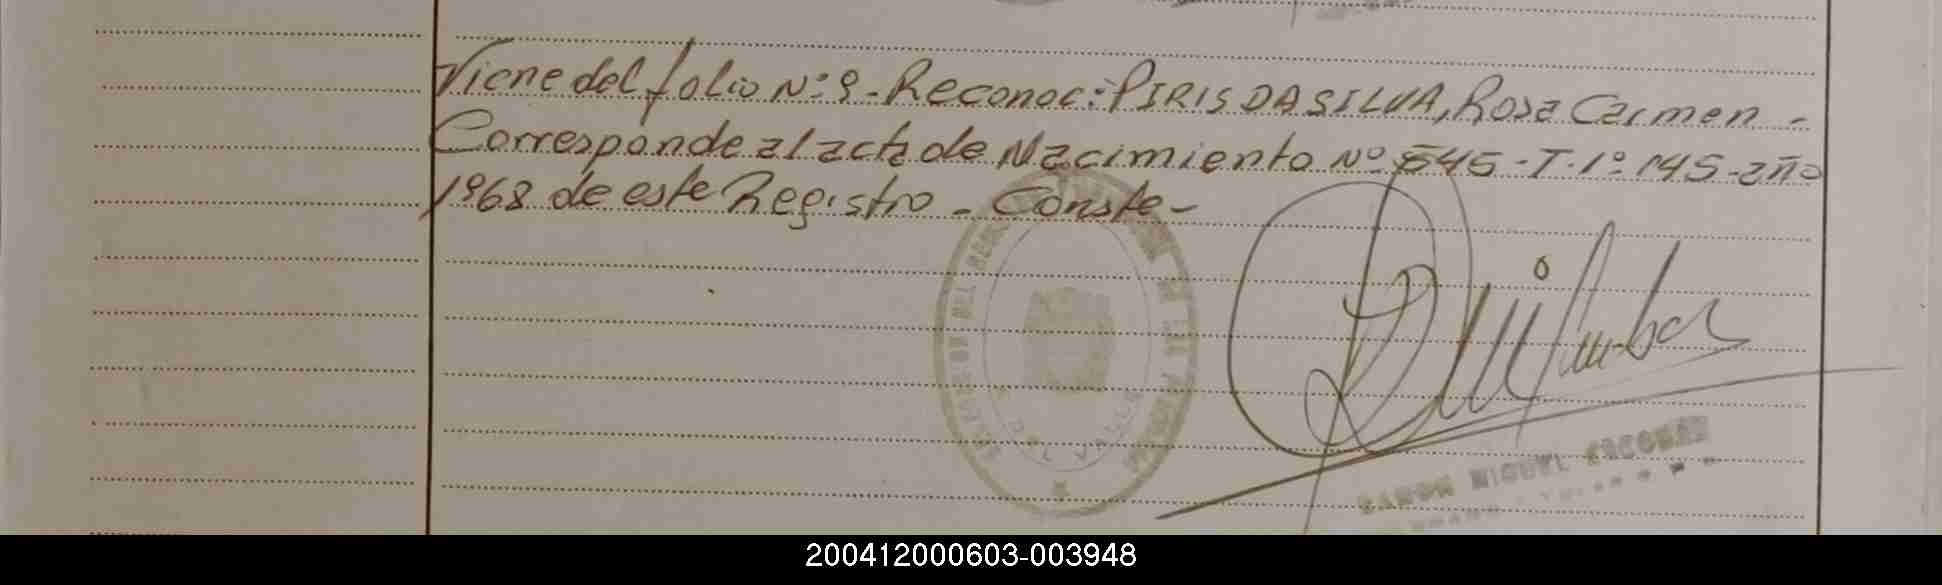 Viene del folio Nº 9 - Reconoc: PIRIS DA SILVA, Rosa Carmen -
Corresponde al acta de Nacimiento Nº 545 - T. 1º 145 - año
1968 de este Registro - Conste -
RAMON MIGUEL ESCOBAR
200412000603-003948